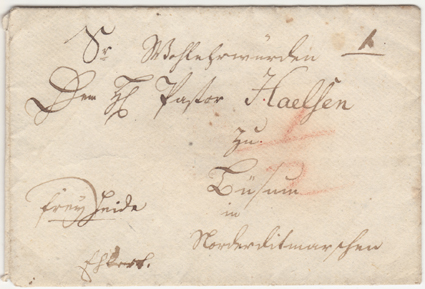 Sr Wohlehrwürden
Dem H Pastor Haelsen
zu
Büsum
in
Norderditmarschen
frey Heide